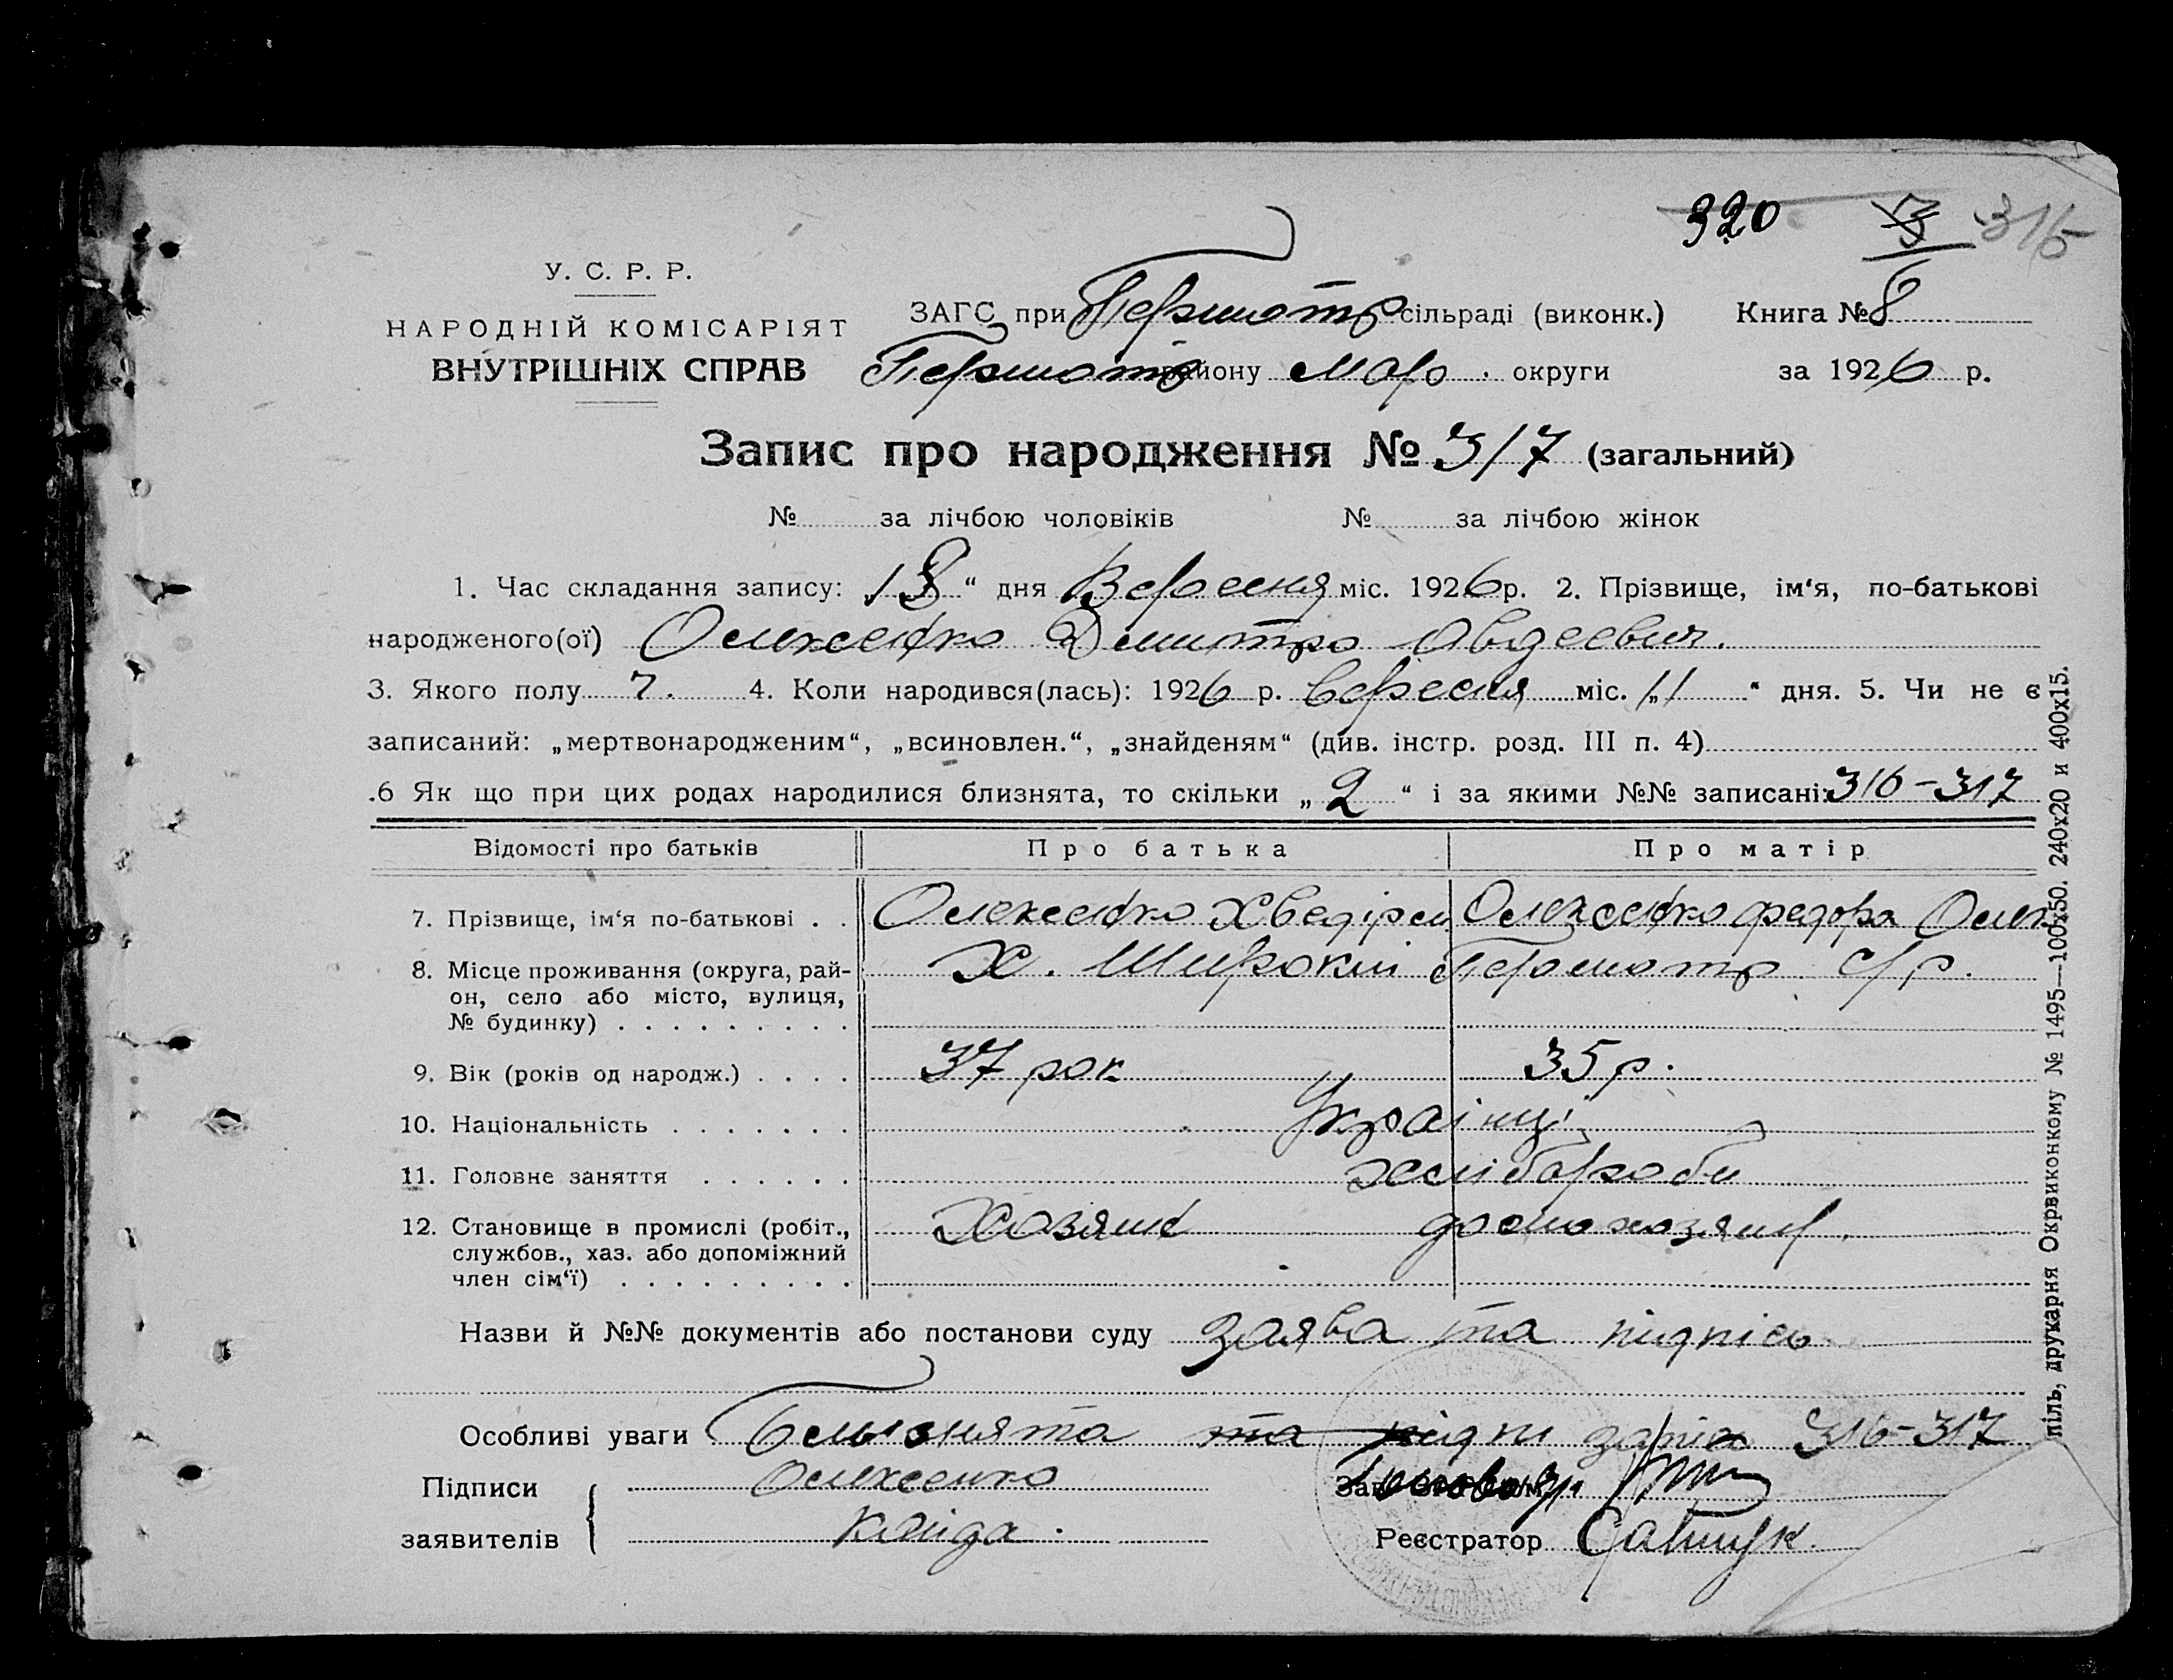 320 3 315
У. С. Р. Р.
НАРОДНІЙ КОМІСАРІЯТ
ВНУТРІШНІХ СПРАВ
ЗАГС при Першотр сільраді (виконк.) Книга № 8
Першотр району Мар. округи за 1926 р.
Запис про народження № 317 (загальний)
№ за лічбою чоловіків № за лічбою жінок
1. Час складання запису: 18 “ дня Вересня міс. 1926 р. 2. Прізвище, ім‘я, по-батькові
народженого(ої) Олексенко Дмитро Авдеевич.
3. Якого полу ч. 4. Коли народився(лась): 1926 р. Вересня міс. „11 “ дня. 5. Чи не є
записаний: „мертвонародженим“, „всиновлен.“, „знайденям“ (див. інстр. розд. III п. 4)
.6 Як що при цих родах народилися близнята, то скільки „ 2 “ і за якими №№ записані: 316-317
Відомості про батьків Про батька Про матір
7. Прізвище, ім‘я по-батькові . . Олексенко Олексенко Федора Олек
8. Місце проживання (округа, рай- Х. Широкий Першотр с/р.
он, село або місто, вулиця,
№ будинку) . . . . . . . . .
9. Вік (років од народж.) . . . . 37 рок 35 р.
10. Національність . . . . . . . Українці
11. Головне заняття . . . . . . хлібороби
12. Становище в промислі (робіт., Хозяин домохозяин.
службов., хаз. або допоміжний
член сім‘ї) . . . . . . . . .
Назви й №№ документів або постанови суду заява та підпісь
Особливі уваги Близнята та запис 316-317
Підписи Олексенко Головозр
заявителів Кліда. Реєстратор
піль, друкарня Окрвиконкому № 1495—100х50. 240х20 и 400х15.